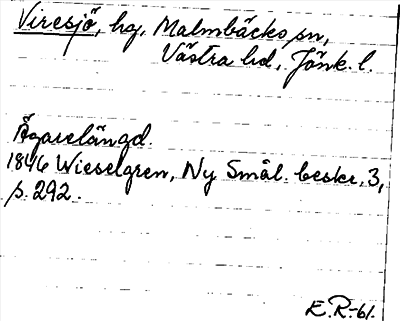 Viresjö, hg, Malmbäcks sn,
Västra hd, Jönk. l.
Ägarelängd.
1846 Wieselgren, Ny Smål. beskr. 3,
s. 292.
E.R.-61.